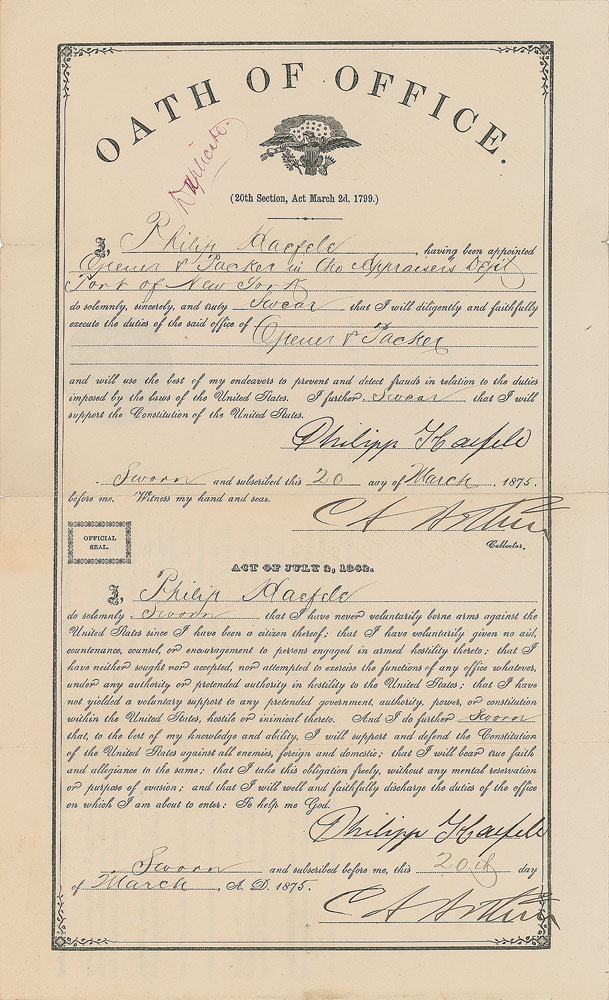 OATH OF OFFICE.
Duplicate.
(20th Section, Act March 2d, 1799.)
I, Philip Haefele, having been appointed
Opener & Packer in the Appraisers Dept
Port of New York
do solemnly, sincerely, and truly Swear that I will diligently and faithfully
execute the duties of the said office of Opener & Packer
and will use the best of my endeavors to prevent and detect frauds in relation to the duties
imposed by the laws of the United States. I further Swear that I will
support the Constitution of the United States.
Philipp Haefele
Sworn and subscribed this 20 day of March, 1875.
before me. Witness my hand and seal.
C A Arthur
Collector.
OFFICIAL
SEAL.
ACT OF JULY 2, 1862.
I, Philip Haefele
do solemnly Sworn that I have never voluntarily borne arms against the
United States since I have been a citizen thereof; that I have voluntarily given no aid,
countenance, counsel, or encouragement to persons engaged in armed hostility thereto; that I
have neither sought nor accepted, nor attempted to exercise the functions of any office whatever,
under any authority or pretended authority in hostility to the United States; that I have
not yielded a voluntary support to any pretended government, authority, power, or constitution
within the United States, hostile or inimical thereto. And I do further Sworn
that, to the best of my knowledge and ability, I will support and defend the Constitution
of the United States against all enemies, foreign and domestic; that I will bear true faith
and allegiance to the same; that I take this obligation freely, without any mental reservation
or purpose of evasion; and that I will well and faithfully discharge the duties of the office
on which I am about to enter: So help me God.
Philipp Haefele
Sworn and subscribed before me, this 20th day
of March, A. D. 1875.
C A Arthur